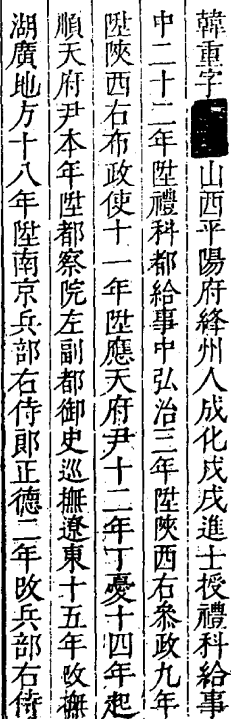 韓重字山西平陽府絳州人成化戊戌進士授禮科給事
中二十二年陞禮科都給事中弘治三年陞陝西右叅政九年
陞陝西右布政使十一年陞應天府尹十二年丁憂十四年起
順天府尹本年陞都察院左副都御史巡撫遼東十五年改撫
湖廣地方十八年陞南京兵部右侍郎正德二年改兵部右侍